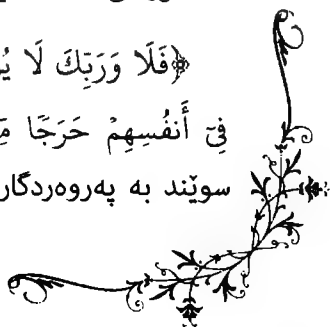 ﴿فَلَا وَرَبِّكَ لَا
فِيٓ أَنفُسِهِمۡ حَرَجٗا
سوێند به پەروەردگار